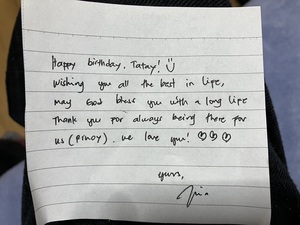 Happy birthday, Tatay! ☺
Wishing you all the best in life,
may God bless you with a long life
Thank you for always being there for
us (pinoy). we love you! ♡♡♡
yours,